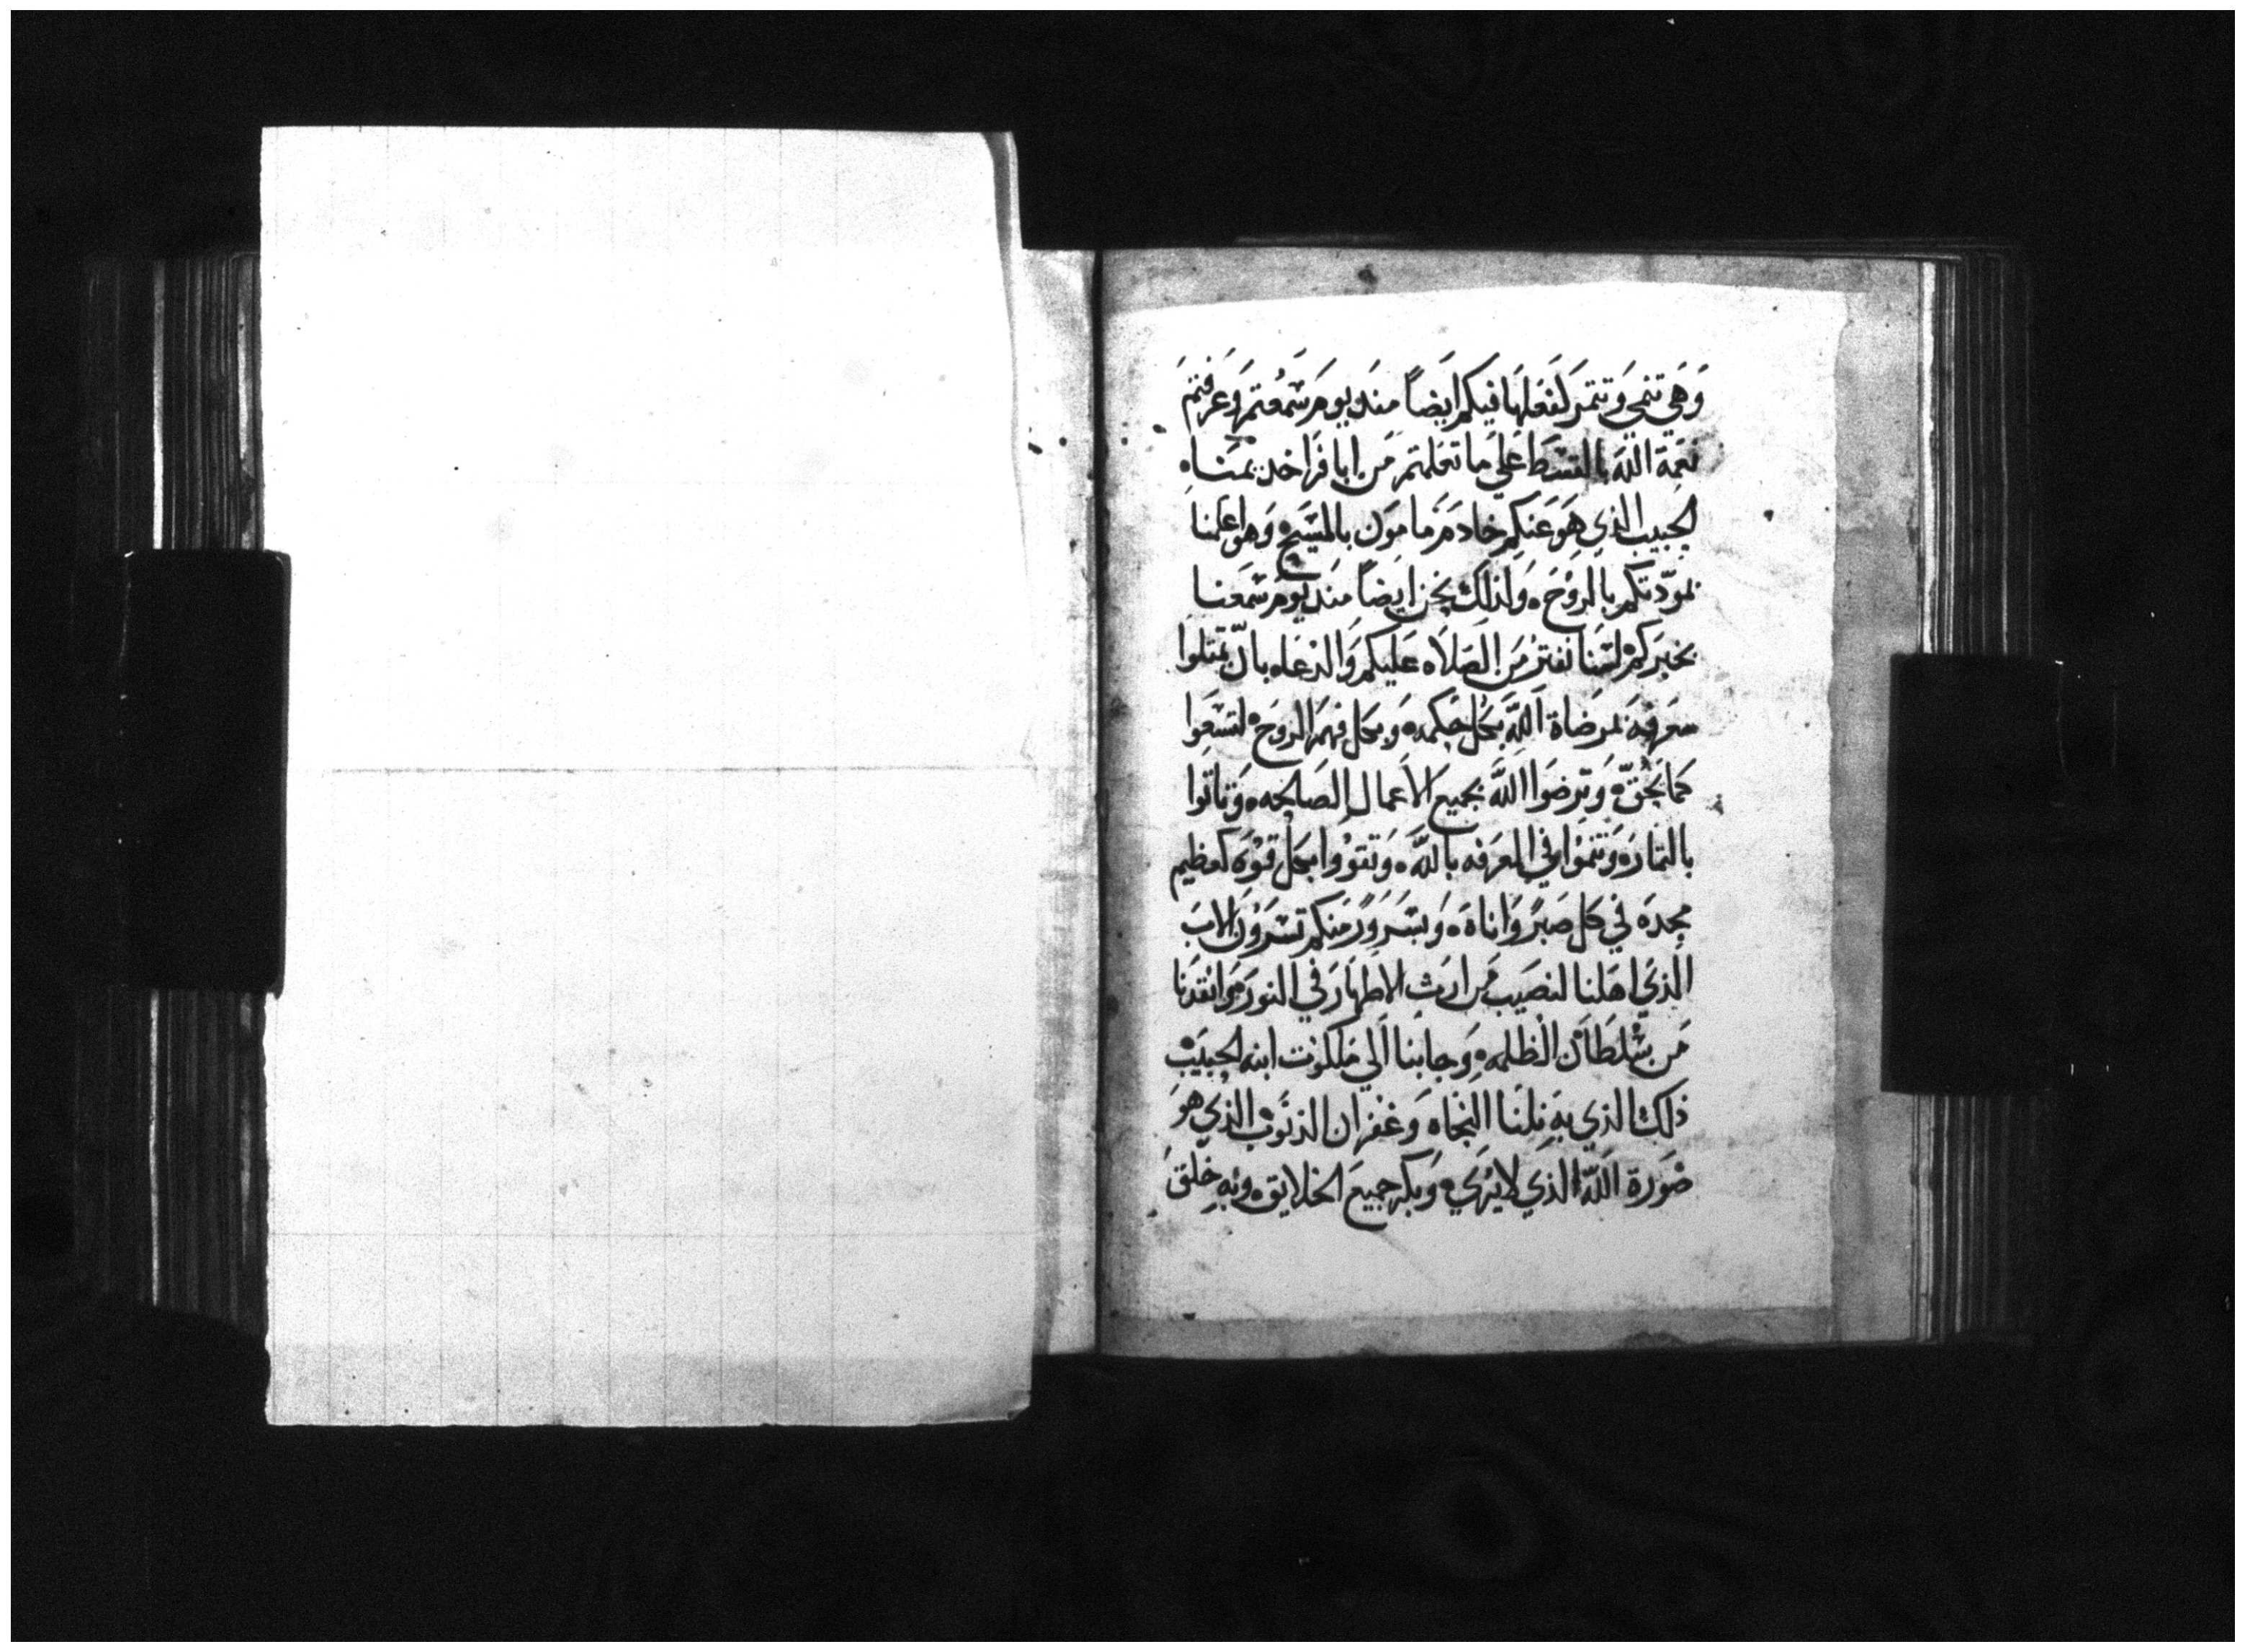 وَهَي تنمي وَتتمرَ كفعَلهَا فيكم ايَضاً منَد يومَ سَمعُتمَ وَعَرفتم
نعَمة اللهَ بالقسَط عَلي مَا تعَلمتمَ مَن ابافرَا خدنِمنَاه
الحَبيب الذي هوَ عَنكم خادمَ مَامون بالمسَيَح وَهوَ اعلمنا
بموَدّتكم بالروُح ٠ وَلذلك نحَن ايَضاً منَد يومَ سَمعَنا
بخبرَكمْ لسَنا نفترُ مَن الصَلَاه عَليكم وَالدعَاه بانّ تمتلوا
معَرفهَ بمرضَاة اللهَ بكَل حَكمه وَبكل فهمَ الروَح لتسَعَوا
كمَا يحَقّ ٠ وَترضَوا اللهَ بجميعَ الاعَمال الصَالحه ٠ وَتاتوا
بالثمارَه وَتنموُا في المعَرفه باللهَ ٠ وَتتقوُوا بكَل قوُهَ كعظيم
مجدهَ في كل صَبرً وَاناةَ ٠ وَبسَرَورً منكم تشكرَوُنَ الابَ
الَذيَ اهَلنا لنصَيَب مَن ارَث الاطهَارَ في النورَ هوَ انقدَنا
مَن سْلطَاَن الظلمه ٠ وَجابنا الَي مَلكوُت ابنه الحبيَبْ
ذلك الذي بهَ نلِنَا النجَاه وَغفرَان الذنوَب الذي هوَ
صْورَة اللهَ الذي لايرُي ٠ وَبكرَ جميعَ الخلايق ٠ وَبهِ خلقَ